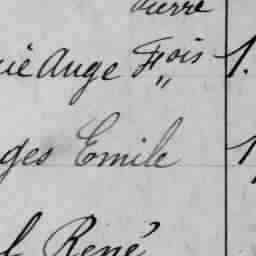 Pierre
ie Ange Fois 1.
ges Emile 1
l René